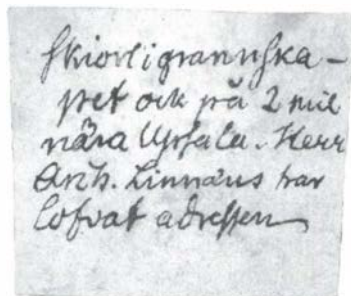 i granska-
pet ock på 2 mil
nära Upsala. Herr
Arch. Linnæus har
lofvat adressen